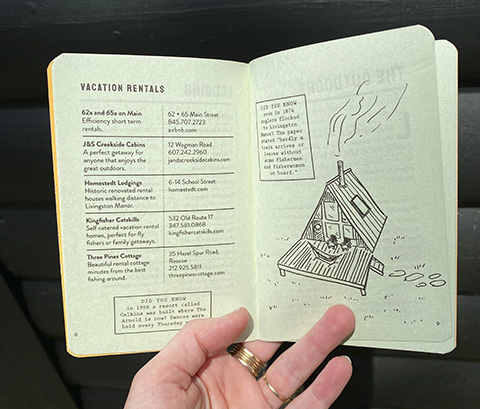 VACATION RENTALS
62a and 65a on Main
Efficiency short term
rentals.
62 + 65 Main Street
845.707.2723
airbnb.com
J&S Creekside Cabins
A perfect getaway for
anyone that enjoys the
great outdoors.
12 Wegman Road
607.242.2960
jandscreeksidecabins.com
Homestedt Lodgings
Historic renovated rental
houses walking distance to
Livingston Manor.
6-14 School Street
homestedt.com
Kingfisher Catskills
Self catered vacation rental
homes, perfect for fly
fishers or family getaways.
532 Old Route 17
347.581.0868
kingfishercatskills.com
Three Pines Cottage
Beautiful rental cottage
minutes from the best
fishing around.
35 Hazel Spur Road,
Roscoe
212.925.5811
threepinescottage.com
DID YOU KNOW
in 1906 a resort called
Calkins was built where The
Arnold is now? Dances were
held every Thursday
8
DID YOU KNOW
soon in 1874
anglers flocked
to Livingston
Manor? The paper
stated "hardly a
train arrives or
leaves without
some fishermen
and fisherwomen
on board."
9